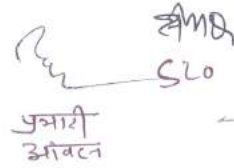 SLO
प्रभारी
आवटन